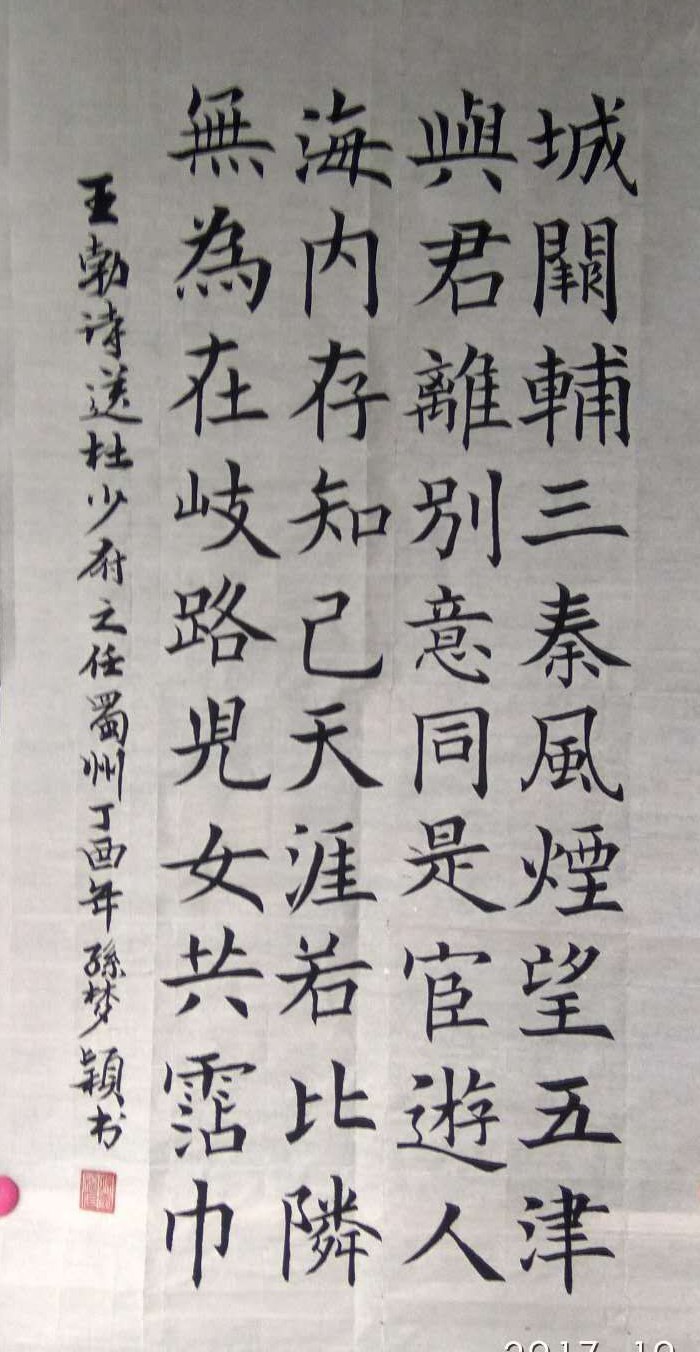 城闕輔三秦風煙望五津
與君離別意同是宦遊人
海内存知己天涯若比隣
無為在岐路児女共霑巾
王勃诗送杜少府之任蜀州丁酉年孫梦颖书